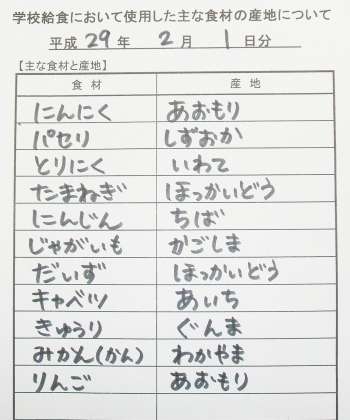 学校給食において使用した主な食材の産地について
平成 29 年 2 月 1 日分
【主な食材と産地】
食 材 産 地
にんにく あおもり
パセリ しずおか
とりにく いわて
たまねぎ ほっかいどう
にんじん ちば
じゃがいも かごしま
だいず ほっかいどう
キャベツ あいち
きゅうり ぐんま
みかん(かん) わかやま
りんご あおもり